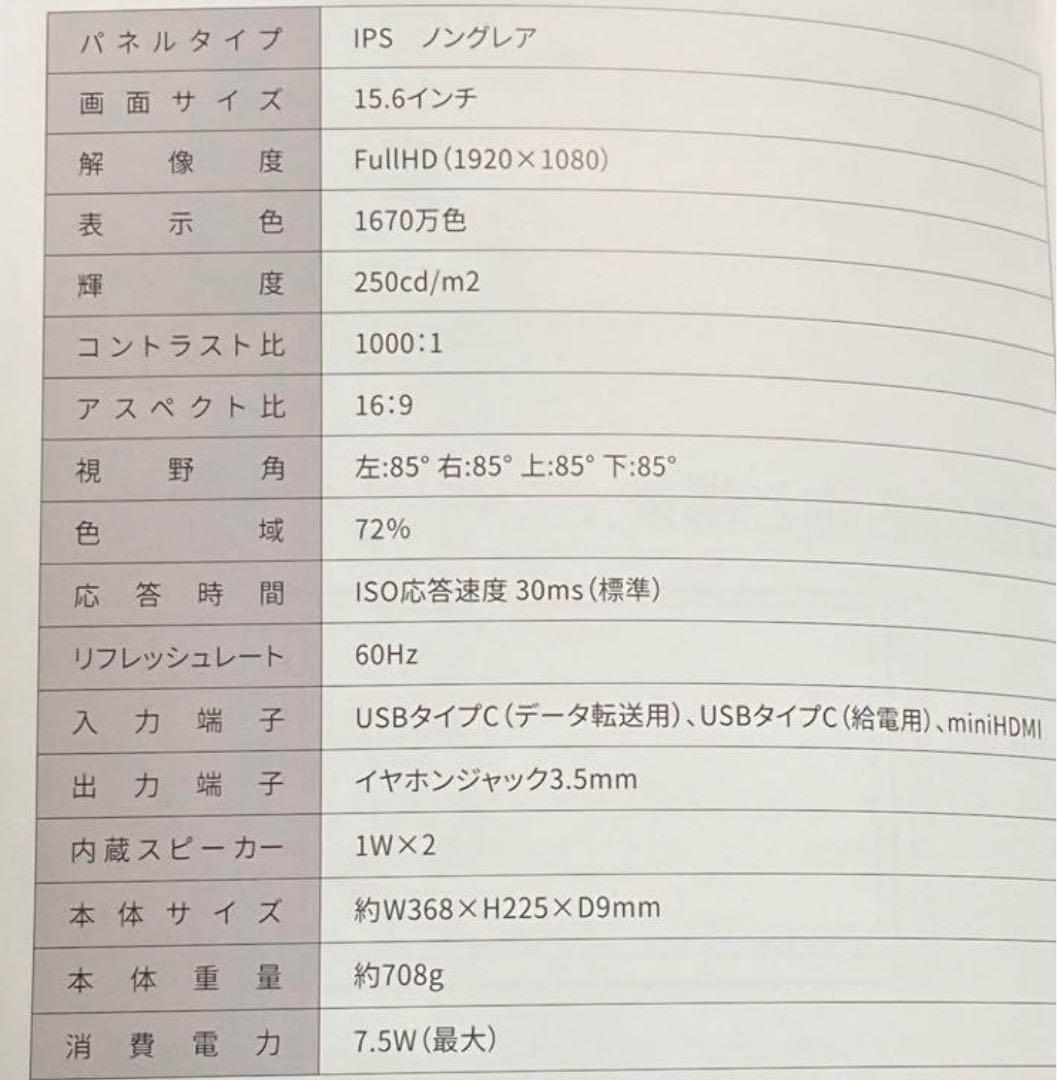 パネルタイプ IPS ノングレア
画面サイズ 15.6インチ
解像度 FullHD（1920×1080）
表示色 1670万色
輝度 250cd/m2
コントラスト比 1000：1
アスペクト比 16：9
視野角 左:85° 右:85° 上:85° 下:85°
色域 72%
応答時間 ISO応答速度 30ms（標準）
リフレッシュレート 60Hz
入力端子 USBタイプC（データ転送用）、USBタイプC（給電用）、miniHDMI
出力端子 イヤホンジャック3.5mm
内蔵スピーカー 1W×2
本体サイズ 約W368×H225×D9mm
本体重量 約708g
消費電力 7.5W（最大）